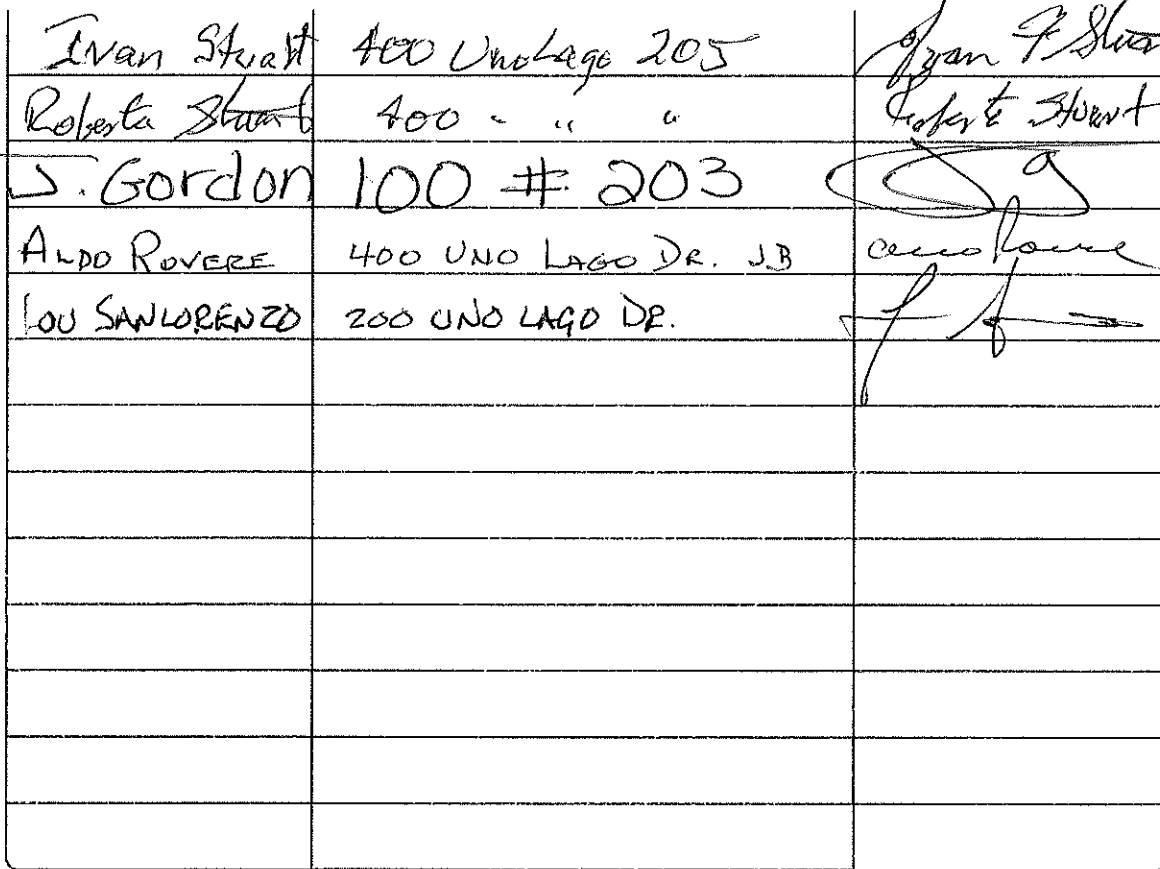 Ivan Stuart 400 Uno Lago 205 Ivan F Stuar
Roberta Stuart 400 " " " Roberta Stuart
J. Gordon 100 # 203
ALDO ROVERE 400 UNO LAGO DR. J.B
LOU SANLORENZO 200 UNO LAGO DR.